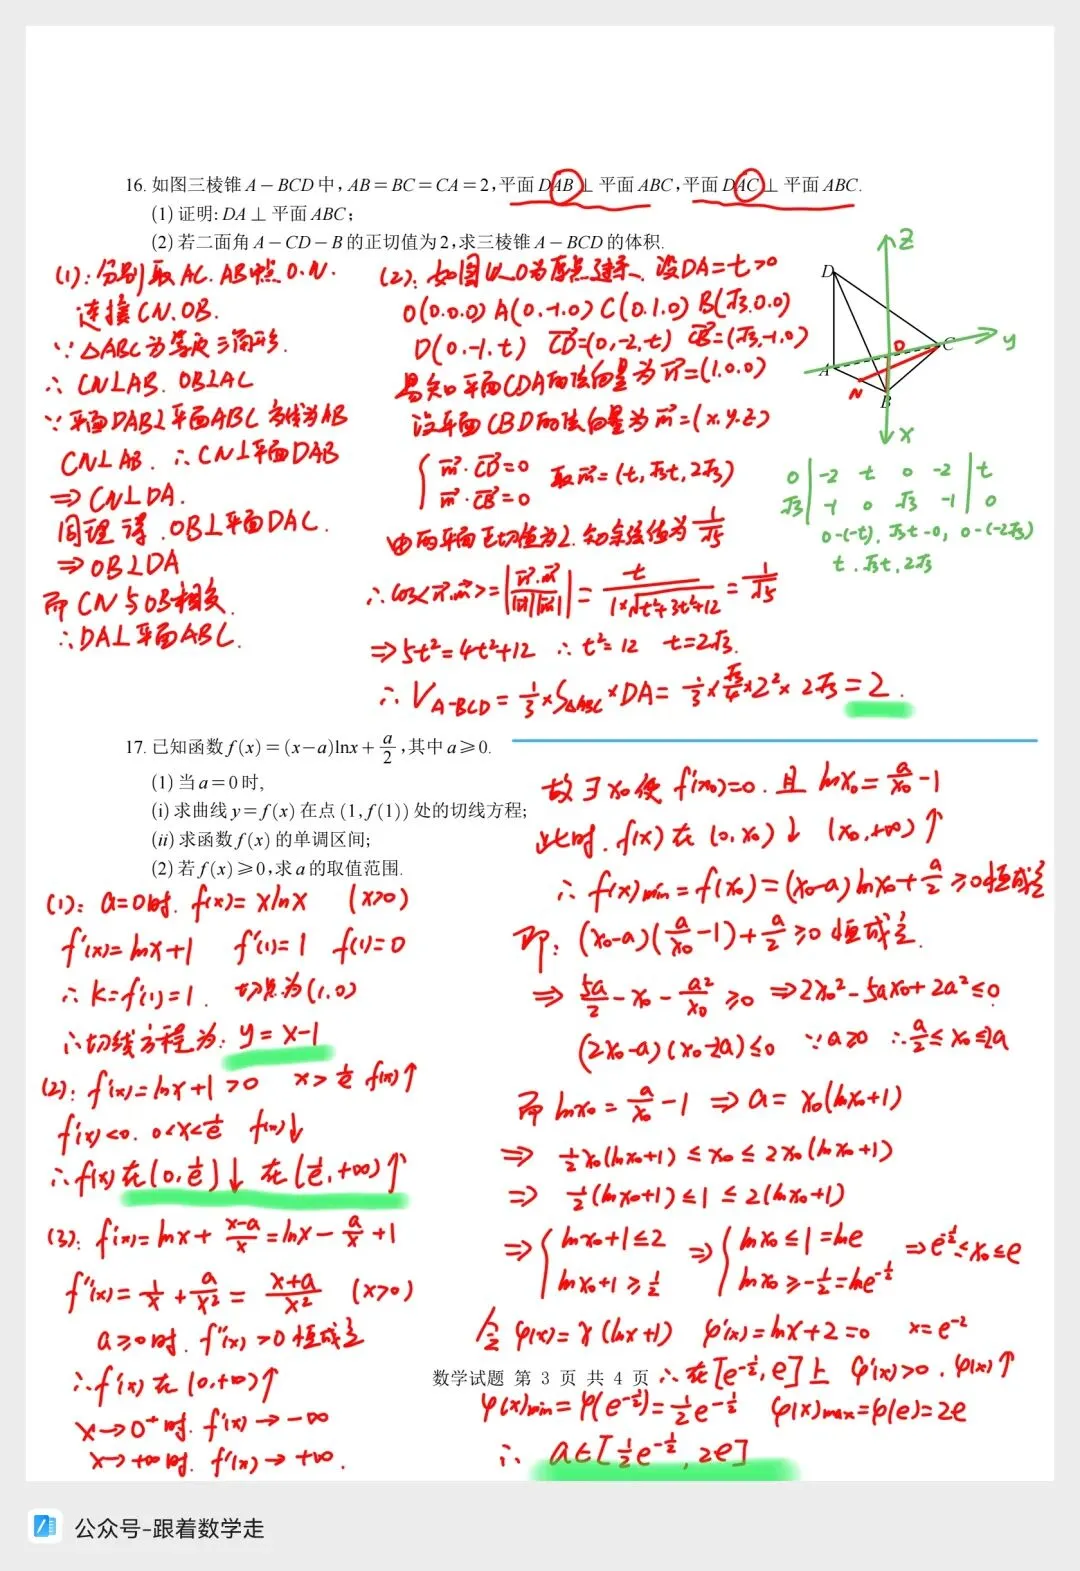 16. 如图三棱锥 A－BCD 中,AB=BC=CA=2,平面 DAB⊥平面 ABC,平面 DAC⊥平面 ABC.
(1) 证明: DA⊥平面 ABC;
(2) 若二面角 A－CD－B 的正切值为 2,求三棱锥 A－BCD 的体积.
(1): 分别取 AC. AB中点 O. N.
连接 CN. OB.
∵ △ABC为等边三角形.
∴ CN⊥AB. OB⊥AC
∵平面DAB⊥平面ABC 交线为AB
CN⊥AB. ∴CN⊥平面DAB
⇒ CN⊥DA.
同理得. OB⊥平面DAC.
⇒OB⊥DA
而 CN与OB相交.
∴DA⊥平面ABC.
(2). 如图以O为原点建系. 设DA=t>0
O(0.0.0) A(0.-1.0) C(0.1.0) B(√3.0.0)
D(0.-1.t) CD=(0,-2,t) CB=(√3,-1,0)
易知平面CDA的法向量为n=(1.0.0)
设平面CBD的法向量为m=(x.y.z)
{ m·CD=0
m·CB=0 取m=(t,√3t,2√3)
由两平面正切值为2. 知余弦值为 1/√5
∴cos<n.m>=|n.m/|n||m||=t/(1×√(t²+3t²+12))=1/√5
⇒5t²=4t²+12 ∴t²=12 t=2√3.
∴ V_{A-BCD}=1/3×S_{△ABC}×DA=1/3×√3/4×2²×2√3=2.
D
z
O
C
y
A
N
B
x
0 | -2 t 0 -2 | t
√3 | -1 0 √3 -1 | 0
0-(-t), √3t-0, 0-(-2√3)
t. √3t. 2√3
17. 已知函数 f(x)=(x－a)lnx+a/2,其中 a⩾0.
(1) 当 a=0 时,
(i) 求曲线 y=f(x) 在点 (1,f(1)) 处的切线方程;
(ii) 求函数 f(x) 的单调区间;
(2) 若 f(x)⩾0,求 a 的取值范围.
(1): a=0时. f(x)=xlnx (x>0)
f'(x)=lnx+1 f'(1)=1 f(1)=0
∴k=f'(1)=1. 切点为(1,0)
∴切线方程为: y=x-1
(2): f'(x)=lnx+1>0 x>1/e f(x)↑
f'(x)<0. 0<x<1/e f(x)↓
∴f(x)在(0,1/e)↓ 在(1/e,+∞)↑
(3): f'(x)=lnx+(x-a)/x=lnx-a/x+1
f''(x)=1/x+a/x²=(x+a)/x² (x>0)
a⩾0时. f''(x)>0恒成立
∴f'(x)在(0,+∞)↑
x→0⁺时. f'(x)→-∞
x→+∞时. f'(x)→+∞.
故∃x₀使 f'(x₀)=0. 且 lnx₀=a/x₀-1
此时. f(x)在(0,x₀)↓ (x₀,+∞)↑
∴f(x)min=f(x₀)=(x₀-a)lnx₀+a/2⩾0恒成立
即: (x₀-a)(a/x₀-1)+a/2⩾0恒成立.
⇒5a/2-x₀-a²/x₀⩾0 ⇒2x₀²-5ax₀+2a²⩽0
(2x₀-a)(x₀-2a)⩽0 ∵a⩾0 ∴a/2⩽x₀⩽2a
而 lnx₀=a/x₀-1 ⇒ a=x₀(lnx₀+1)
⇒ 1/2x₀(lnx₀+1)⩽x₀⩽2x₀(lnx₀+1)
⇒ 1/2(lnx₀+1)⩽1⩽2(lnx₀+1)
⇒{ lnx₀+1⩽2 ⇒{ lnx₀⩽1=lne ⇒e^{-1/2}⩽x₀⩽e
lnx₀+1⩾1/2 lnx₀⩾-1/2=lne^{-1/2}
令 φ(x)=x(lnx+1) φ'(x)=lnx+2=0 x=e^{-2}
∴在[e^{-1/2},e]上 φ'(x)>0. φ(x)↑
φ(x)min=φ(e^{-1/2})=1/2e^{-1/2} φ(x)max=φ(e)=2e
∴ a∈[1/2e^{-1/2},2e]
数学试题 第 3 页 共 4 页
公众号-跟着数学走